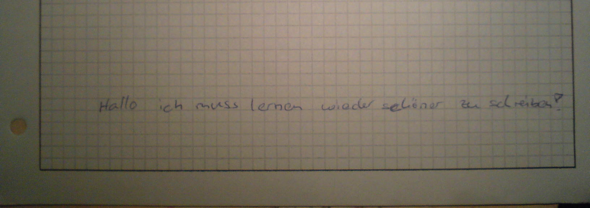 Hallo ich muss lernen wieder schöner zu schreiben!